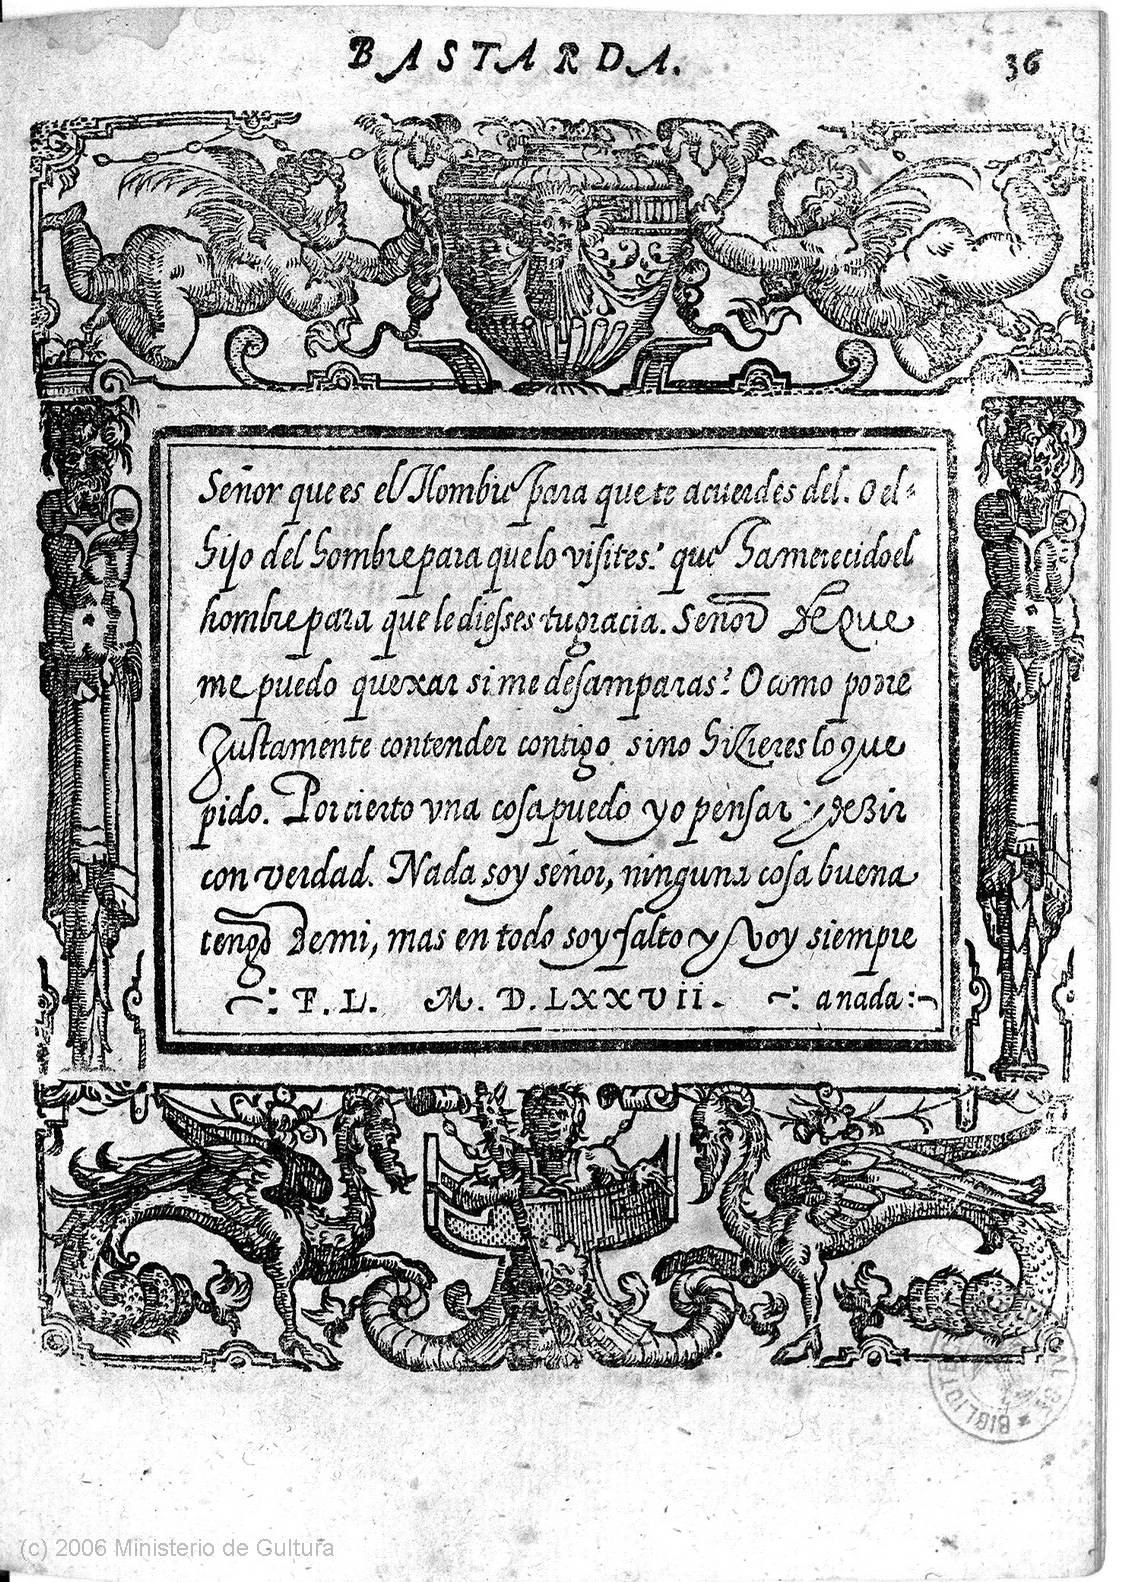 BASTARDA.
36
Señor que es el Hombre para que te acuerdes del. O el
hijo del hombre para que lo visites? que ha merecido el
hombre para que le diesses tu gracia. Señor De Que
me puedo quexar si me desamparas? O como podre
Justamente contender contigo, si no hizieres lo que
pido. Por cierto vna cosa puedo yo pensar y dezir
con verdad. Nada soy señor, ninguna cosa buena
tengo De mi, mas en todo soy falto y voy siempre
F. L. M. D. LXXVII. anada
BIBLIOT
(c) 2006 Ministerio de Cultura